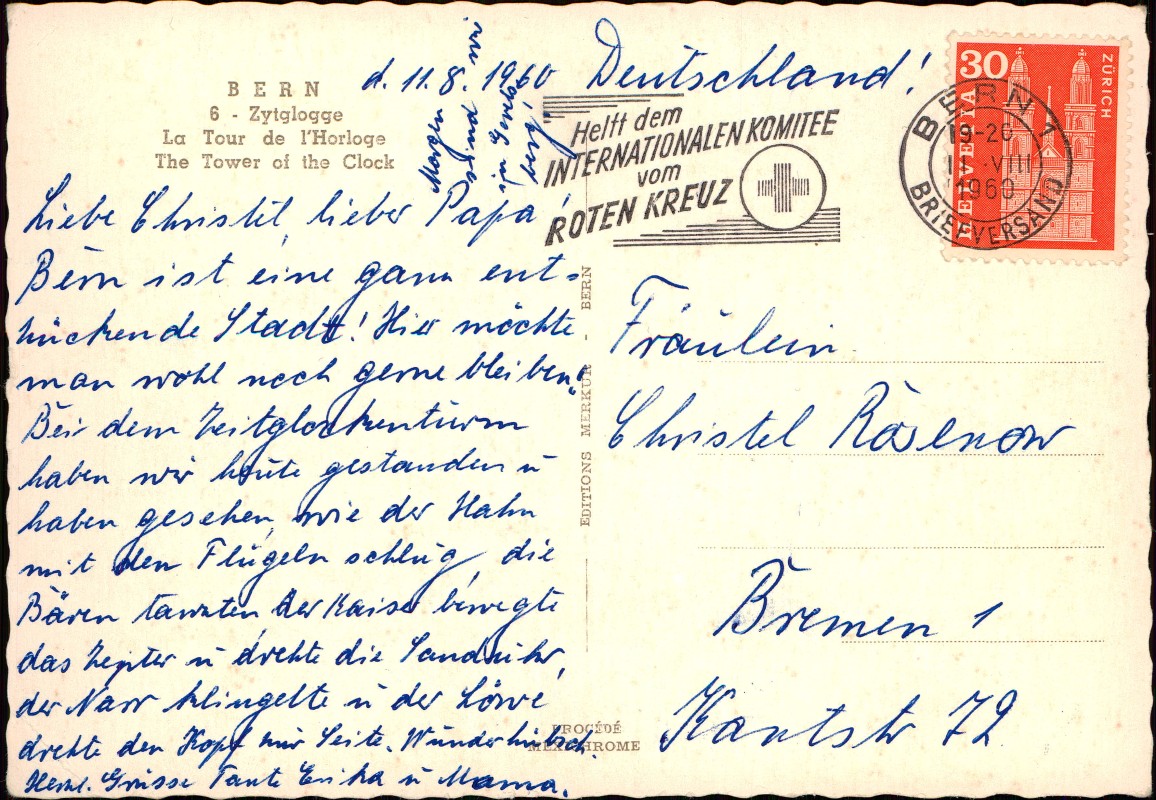 BERN
6 - Zytglogge
La Tour de l'Horloge
The Tower of the Clock
d. 11.8.1960
Morgen
sind wir
in Gerls
berg!
Liebe Christel, lieber Papa!
Bern ist eine ganz ent=
zückende Stadt! Hier möchte
man wohl noch gerne bleiben.
Bei dem Zeitglockenturm
haben wir heute gestanden u
haben gesehen, wie der Hahn
mit den Flügeln schlug, die
Bären tanzten der Kaiser bewegte
das Zepter u drehte die Sanduhr,
der Narr klingelte u der Löwe
drehte den Kopf zur Seite. Wunderhübsch.
Herzl. Grüsse Tante Erika u Mama.
EDITIONS MERKUR - BERN
PROCÉDÉ
MEXICHROME
Deutschland!
Helft dem
INTERNATIONALEN KOMITEE
vom
ROTEN KREUZ
BERN 1
19-20
11.VIII
1960
BRIEFVERSAND
30
HELVETIA
ZÜRICH
Fräulein
Christel Rösenow
Bremen 1
Kantstr 72